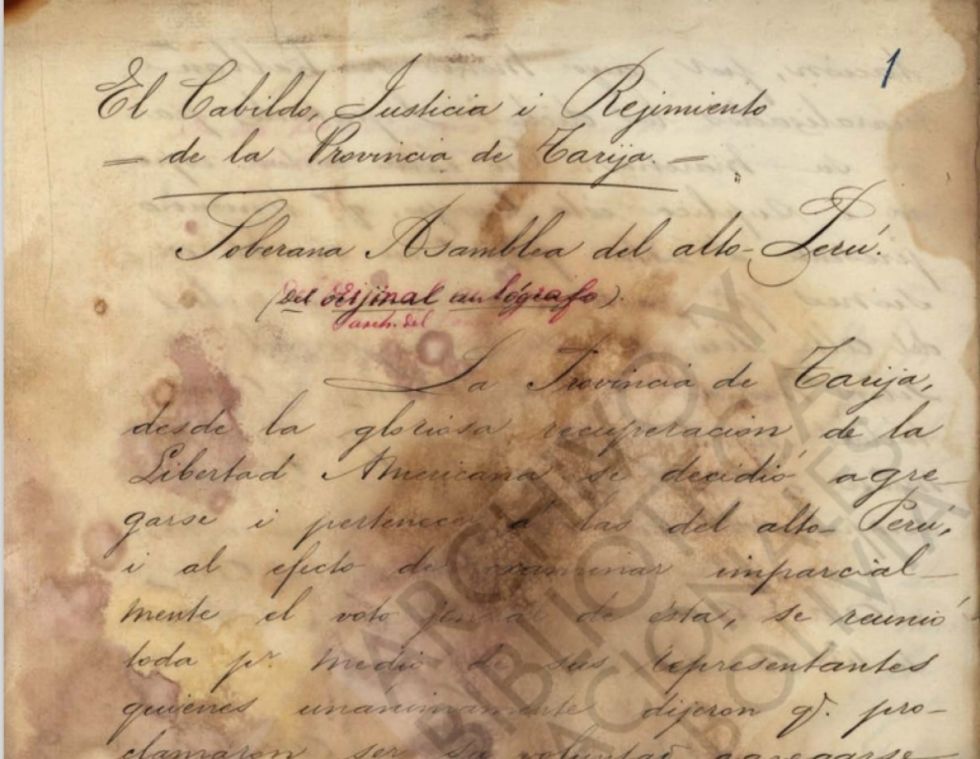 1
El Cabildo, Justicia i Rejimiento
= de la Provincia de Tarija. =
Soberana Asamblea del alto-Perú.
(del orijinal autógrafo).
arch. del
La Provincia de Tarija,
desde la gloriosa recuperacion de la
Libertad Americana se decidió agre-
garse i pertenecer a' las del alto-Perú,
i al efecto de examinar imparcial-
mente el voto jeneral de ésta, se reunió
toda pr. medio de sus representantes
quienes unanimamente dijeron q̃. pro-
clamaron ser su voluntad agregarse
ARCHIVO Y
BIBLIOTECA
NACIONALES
BOLIVIA